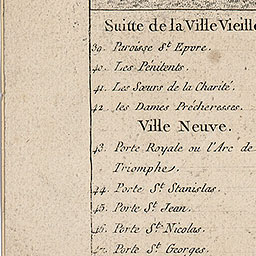 Suitte de la Ville Vieille
39. Paroisse St Epvre.
40. Les Pénitents.
41. Les Sœurs de la Charité.
42. les Dames Précheresses.
Ville Neuve.
43. Porte Royale ou l'Arc de
Triomphe.
44. Porte St Stanislas.
45. Porte St Jean.
46. Porte St Nicolas.
47. Porte St Georges.